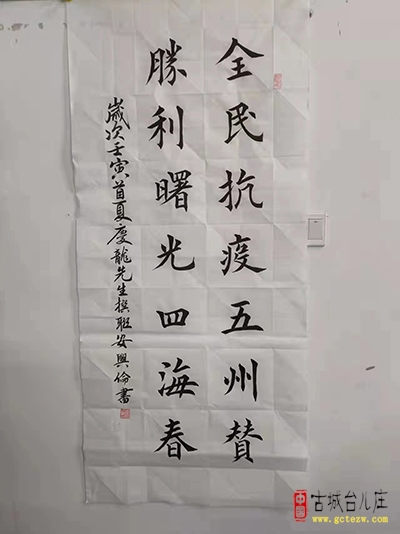 全民抗疫五州赞
勝利曙光四海春
歲次壬寅首夏慶龍先生撰联安興倫書
中國
古城台儿庄
www.gctezw.com